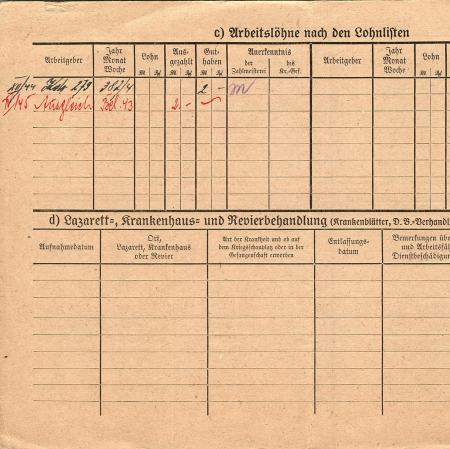 c) Arbeitslöhne nach den Lohnlisten
Arbeitgeber
Jahr Monat Woche
Lohn
M Pf
Ausgezahlt
M Pf
Guthaben
M Pf
Anerkenntnis
der Zahlmeisterei
des Kr.-Gef.
Arbeitgeber
Jahr Monat Woche
Lohn
M Pf
2 -
Ausgleich 2.-
d) Lazarett-, Krankenhaus- und Revierbehandlung (Krankenblätter, D.B.-Verhandl
Aufnahmedatum
Ort, Lazarett, Krankenhaus oder Revier
Art der Krankheit und ob auf dem Kriegsschauplatz oder in der Gefangenschaft erworben
Entlassungsdatum
Bemerkungen übe
und Arbeitsfä
Dienstbeschädigu